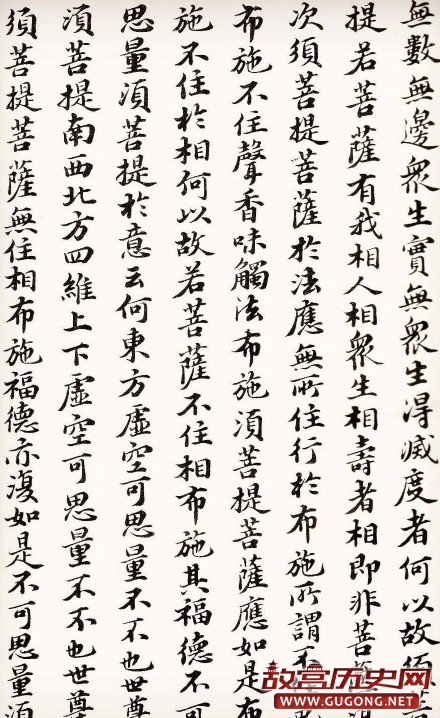 無數無邊眾生實無眾生得滅度者何以故須菩
提若菩薩有我相人相眾生相壽者相即非菩薩
次須菩提菩薩於法應無所住行於布施所謂不
布施不住聲香味觸法布施須菩提菩薩應如是布
施不住於相何以故若菩薩不住相布施其福德不可
思量須菩提於意云何東方虛空可思量不不也世尊
須菩提南西北方四維上下虛空可思量不不也世尊
須菩提菩薩無住相布施福德亦復如是不可思量須
故宫历史网
WWW.GUGONG.NET